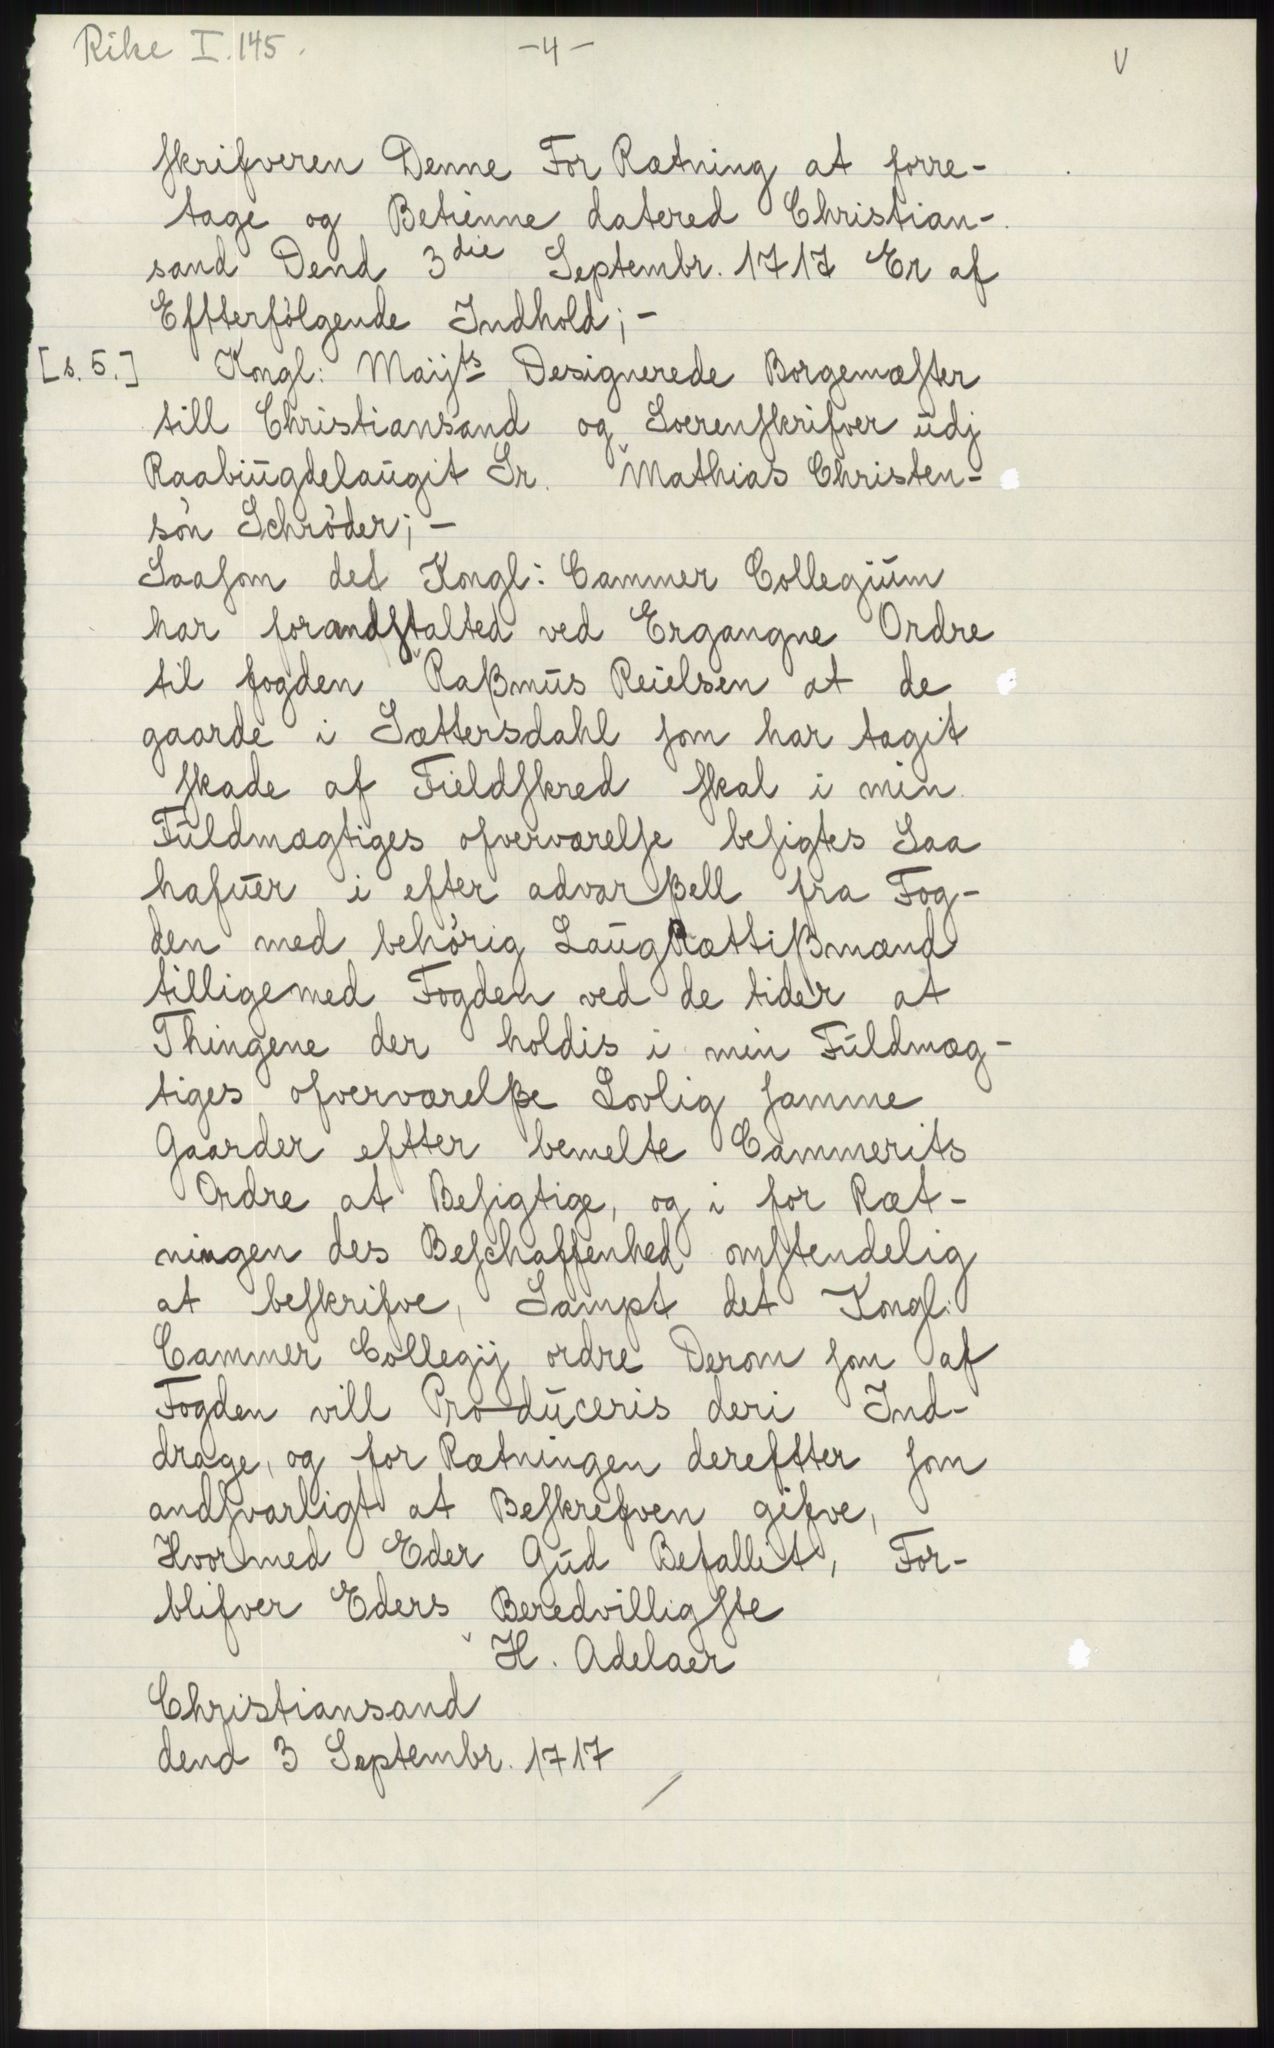 Rike I.145. -4- v
skrifveren Denne For Rætning at forre-
tage og Betienne datered Christian-
sand Dend 3die Septembr. 1717 Er af
Effterfølgende Indhold; -
[s. 5.] Kongl: Maijts Designerede Borgemæster
till Christiansand og Sorenskrifver udj
Raabiugdelaugit Sr. Mathias Christen-
søn Schrøder; -
Saasom det Kongl: Cammer Collegium
har forandstalted ved Ergangne Ordre
til fogden Raßmus Reielsen at de
gaarde i Sættersdahl som har tagit
skade af Fieldskred skal i min
Fuldmægtiges ofverværelse besigtes Saa
hafuer i efter advarßell fra Fog-
den med behørig LaugRættißmænd
tilligemed Fogden ved de tider at
Thingene der holdis i min Fuldmæg-
tiges ofverværelße Lovlig samme
Gaarder effter bemelte Cammerits
Ordre at Besigtige, og i for Ræt-
ningen des Beschaffenhed omstendelig
at beskrifve, Sampt det Kongl:
Cammer Collegij ordre Derom som af
Fogden vill Produceris deri Ind-
drage, og for Rætningen dereffter som
andsvarligt at Beskrefven gifve,
Hvormed Eder Gud Befallit, For-
blifver Eders Beredvilligste
H. Adelaer
Christiansand
dend 3 Septembr. 1717